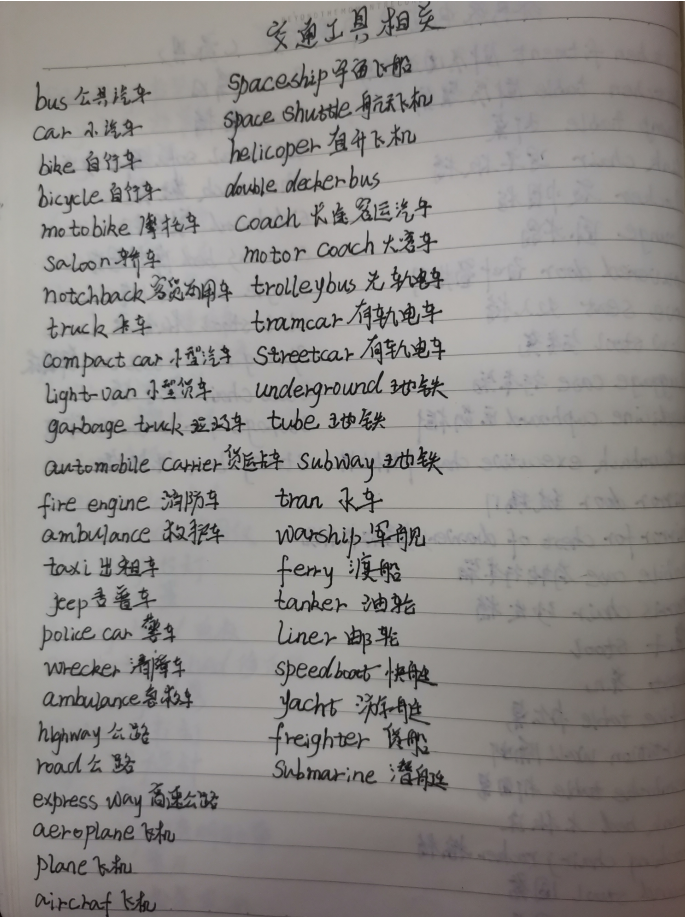 交通工具相关
bus 公共汽车
car 小汽车
bike 自行车
bicycle 自行车
motobike 摩托车
saloon 轿车
notchback 客货两用车
truck 卡车
compact car 小型汽车
light-van 小型货车
garbage truck 垃圾车
automobile carrier 货运卡车
fire engine 消防车
ambulance 救护车
taxi 出租车
jeep 吉普车
police car 警车
wrecker 清障车
ambulance 急救车
highway 公路
road 公路
express way 高速公路
aeroplane 飞机
plane 飞机
aircraf 飞机
spaceship 宇宙飞船
space shuttle 航天飞机
helicoper 直升飞机
double decker bus
coach 长座客运汽车
motor coach 大客车
trolleybus 无轨电车
tramcar 有轨电车
streetcar 有轨电车
underground 地铁
tube 地铁
subway 地铁
tran 火车
warship 军舰
ferry 渡船
tanker 油轮
liner 邮轮
speedboat 快艇
yacht 游艇
freighter 货船
submarine 潜艇